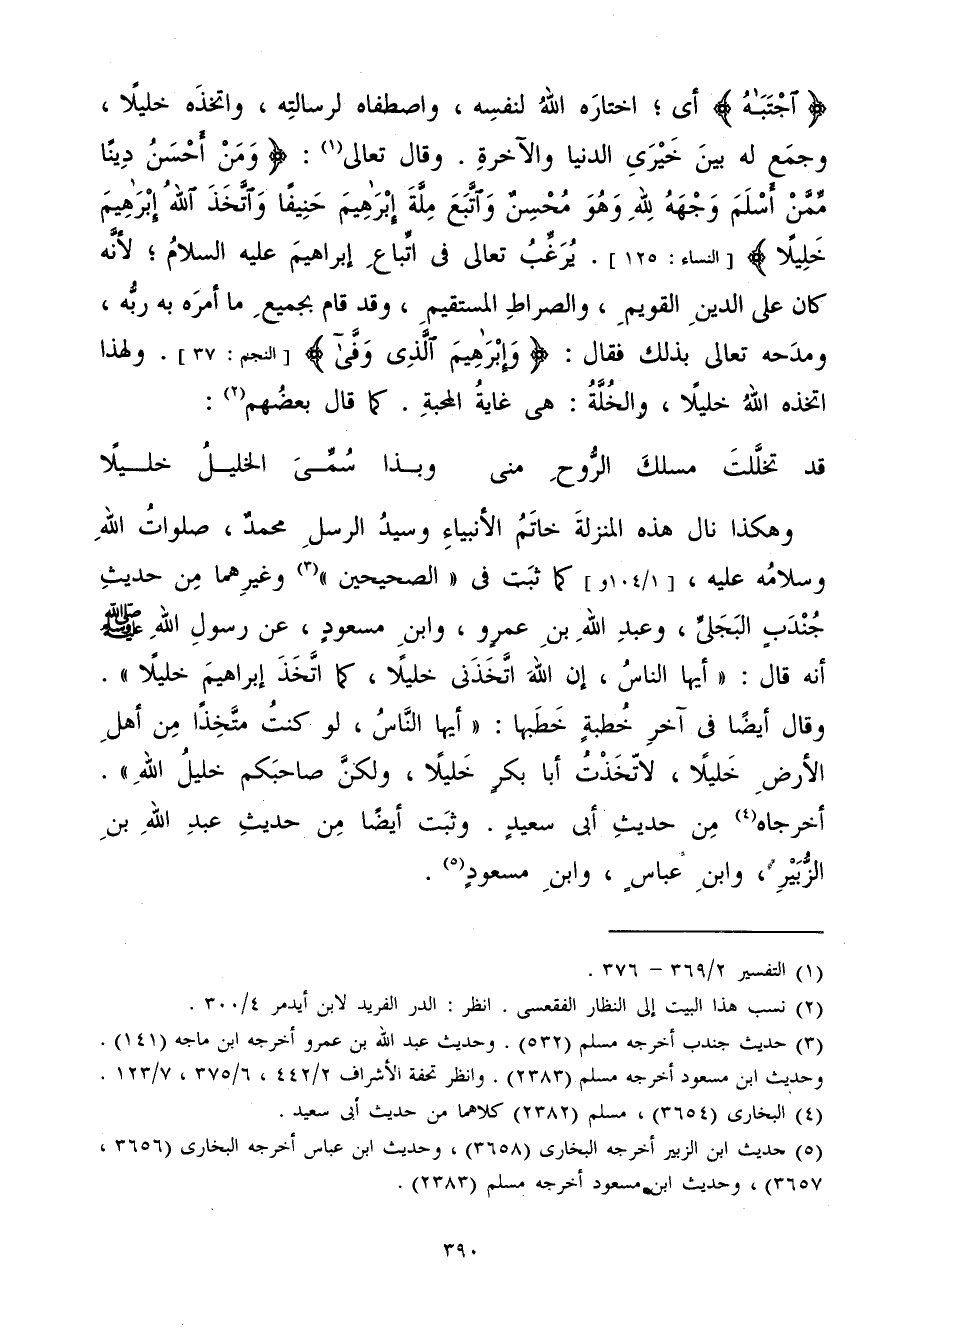 ﴿ ٱجْتَبَىٰهُ ﴾ أى ؛ اختارَه اللهُ لنفسِه ، واصطفاه لرسالتِه ، واتخذَه خليلًا ،
وجمَع له بينَ خَيْرَىِ الدنيا والآخرةِ . وقال تعالى(١) : ﴿ وَمَنْ أَحْسَنُ دِينًا
مِّمَّنْ أَسْلَمَ وَجْهَهُ لِلَّهِ وَهُوَ مُحْسِنٌ وَٱتَّبَعَ مِلَّةَ إِبْرَٰهِيمَ حَنِيفًا وَٱتَّخَذَ ٱللَّهُ إِبْرَٰهِيمَ
خَلِيلًا ﴾ [ النساء : ١٢٥ ] . يُرَغِّبُ تعالى فى اتِّباعِ إبراهيمَ عليه السلامُ ؛ لأنَّه
كان على الدينِ القويمِ ، والصراطِ المستقيمِ ، وقد قام بجميعِ ما أمرَه به ربُّه ،
ومدَحه تعالى بذلك فقال : ﴿ وَإِبْرَٰهِيمَ ٱلَّذِى وَفَّىٰٓ ﴾ [ النجم : ٣٧ ] . ولهذا
اتخذه اللهُ خليلًا ، والخُلَّةُ : هى غايةُ المحبةِ . كما قال بعضُهم(٢) :
قد تخلَّلتَ مسلكَ الرُّوحِ منى وبـذا سُمِّـىَ الخليلُ خلـيلًا
وهكذا نال هذه المنزلةَ خاتَمُ الأنبياءِ وسيدُ الرسلِ محمدٌ ، صلواتُ اللهِ
وسلامُه عليه ، [ ١٠٤/١و ] كما ثبَت فى « الصحيحين »(٣) وغيرِهما مِن حديثِ
جُنْدَبٍ البَجَلىِّ ، وعبدِ اللهِ بنِ عمرٍو ، وابنِ مسعودٍ ، عن رسولِ اللهِ ﷺ
أنه قال : « أيها الناسُ ، إن اللهَ اتَّخَذَنى خليلًا ، كما اتَّخَذَ إبراهيمَ خليلًا » .
وقال أيضًا فى آخرِ خُطبةٍ خَطَبها : « أيها النَّاسُ ، لو كنتُ متَّخِذًا مِن أهلِ
الأرضِ خَليلًا ، لاتَّخَذْتُ أبا بكرٍ خَليلًا ، ولكنَّ صاحبَكم خليلُ اللهِ » .
أخرجاه(٤) مِن حديثِ أبى سعيدٍ . وثبَت أيضًا مِن حديثِ عبدِ اللهِ بنِ
الزُّبَيْرِ ، وابنِ عباسٍ ، وابنِ مسعودٍ(٥) .
(١) التفسير ٣٦٩/٢ – ٣٧٦ .
(٢) نسب هذا البيت إلى النظار الفقعسى . انظر : الدر الفريد لابن أيدمر ٣٠٠/٤ .
(٣) حديث جندب أخرجه مسلم (٥٣٢) . وحديث عبد الله بن عمرو أخرجه ابن ماجه (١٤١) .
وحديث ابن مسعود أخرجه مسلم (٢٣٨٣) . وانظر تحفة الأشراف ٤٤٢/٢ ، ٣٧٥/٦ ، ١٢٣/٧ .
(٤) البخارى (٣٦٥٤) ، مسلم (٢٣٨٢) كلاهما من حديث أبى سعيد .
(٥) حديث ابن الزبير أخرجه البخارى (٣٦٥٨) ، وحديث ابن عباس أخرجه البخارى (٣٦٥٦ ،
٣٦٥٧) ، وحديث ابن مسعود أخرجه مسلم (٢٣٨٣) .
٣٩٠